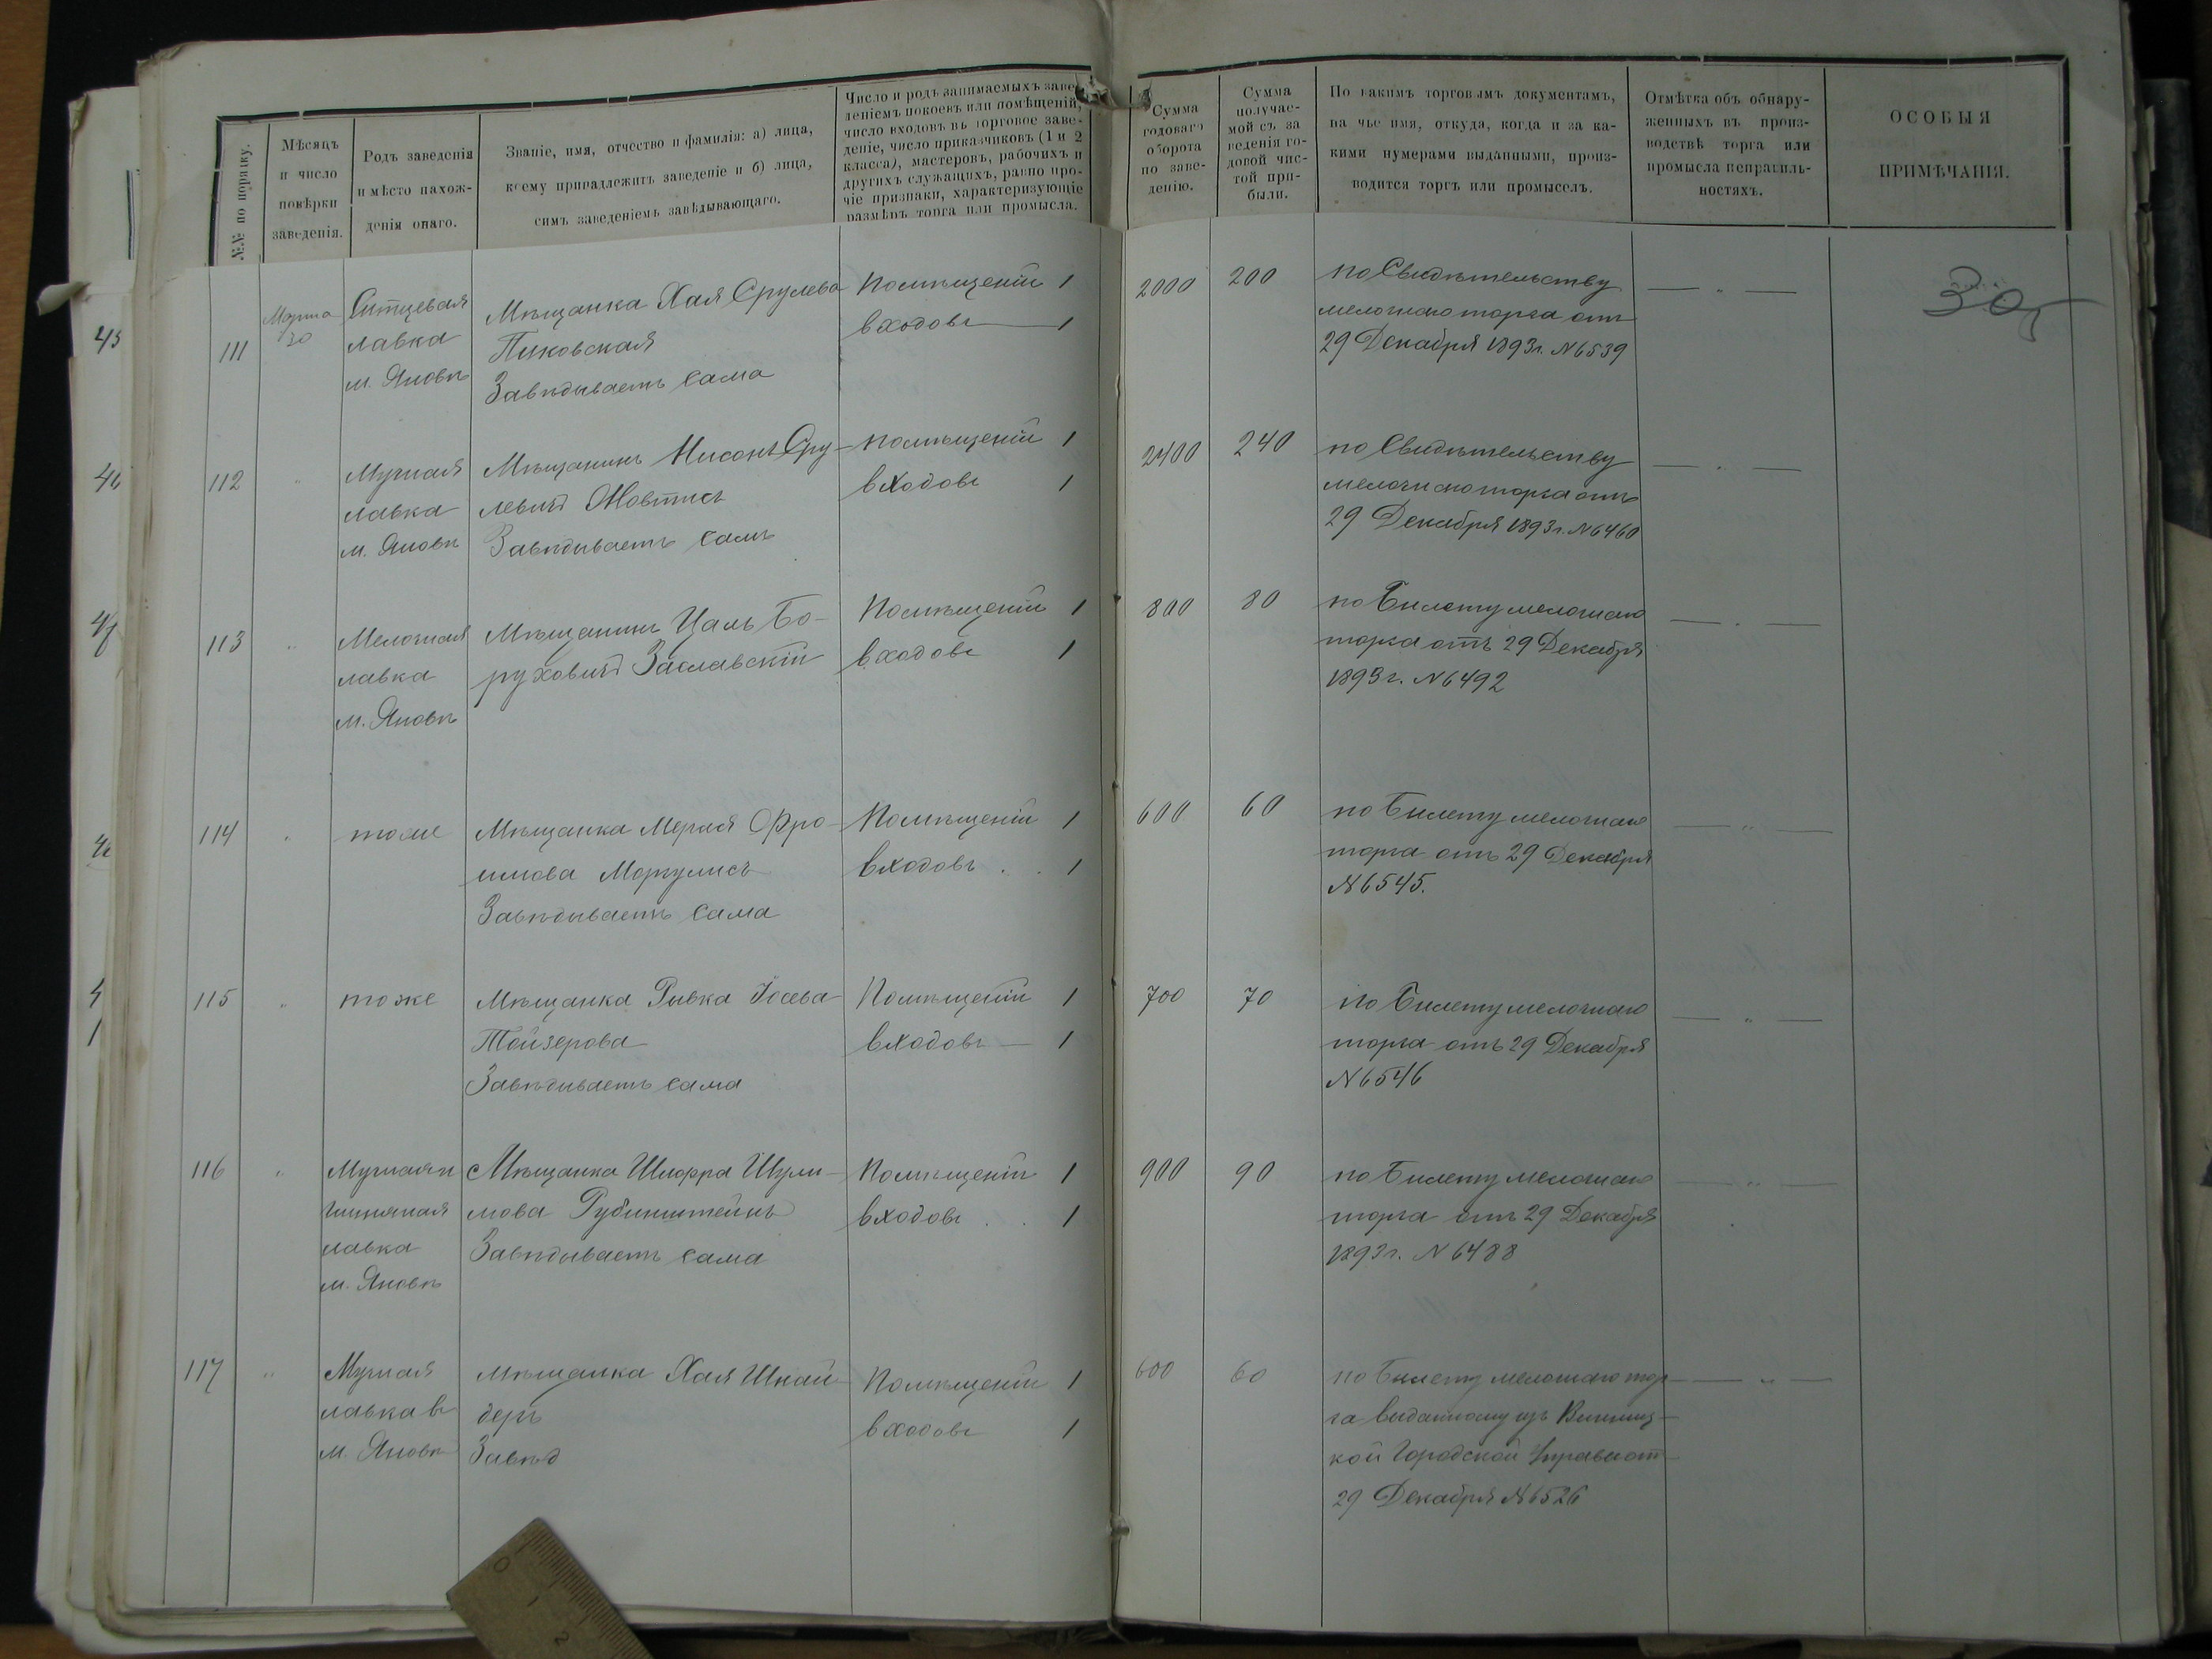 №№ по порядку.
Мѣсяцъ
и число
повѣрки
заведенія.
Родъ заведенія
и мѣсто нахож-
денія онаго.
Званіе, имя, отчество и фамилія: а) лица,
коему принадлежитъ заведеніе и б) лица,
симъ заведеніемъ завѣдывающаго.
Число и родъ занимаемыхъ заве-
деніемъ покоевъ или помѣщеній,
число входовъ въ торговое заве-
деніе, число приказчиковъ (1 и 2
класса), мастеровъ, рабочихъ и
другихъ служащихъ, равно про-
чіе признаки, характеризующіе
размѣръ торга или промысла.
Сумма
годоваго
оборота
по заве-
денію.
Сумма
получае-
мой съ за
веденія го-
довой чис-
той при-
были.
По какимъ торговымъ документамъ,
на чье имя, откуда, когда и за ка-
кими нумерами выданными, произ-
водится торгъ или промыселъ.
Отмѣтка объ обнару-
женныхъ въ произ-
водствѣ торга или
промысла неправиль-
ностяхъ.
ОСОБЫЯ
ПРИМѢЧАНІЯ.
111
Марта
30
Ситцевая
лавка
м. Яновѣ
Мѣщанка Хая Срулева
Пиковская
Завѣдываетъ сама
Помѣщеній 1
входовъ — 1
2000
200
по Свидѣтельству
мелочнаго торга отъ
29 Декабря 1893г. №6539
— „ —
112
„
Мучная
лавка
м. Яновѣ
Мѣщанинъ Нисонъ Сру-
левичъ Жовтисъ
Завѣдываетъ самъ
помѣщеній 1
входовъ 1
2400
240
по Свидѣтельству
мелочнаго торга отъ
29 Декабря 1893г. №6460
— „ —
113
„
Мелочная
лавка
м. Яновѣ
Мѣщанинъ Цаль Бо-
руховичъ Заславскій
Помѣщеній 1
входовъ 1
800
80
по Билету мелочнаго
торга отъ 29 Декабря
1893г. №6492
— „ —
114
„
тоже
Мѣщанка Фро-
имова Маргулисъ
Завѣдываетъ сама
Помѣщеній 1
входовъ . . 1
600
60
по Билету мелочнаго
торга отъ 29 Декабря
№6545.
— „ —
115
„
тоже
Мѣщанка Ривка Іосева
Тойзерова
Завѣдываетъ сама
Помѣщеній 1
входовъ — 1
700
70
по Билету мелочнаго
торга отъ 29 Декабря
№6546
— „ —
116
„
Мучная и
лавка
м. Яновѣ
Мѣщанка Шлофра Шули-
мова Рубинштейнъ
Завѣдываетъ сама
Помѣщеній 1
входовъ . . 1
900
90
по Билету мелочнаго
торга отъ 29 Декабря
1893г. №6488
— „ —
117
„
Мучная
лавка въ
м. Яновѣ
мѣщанка Хая Шнай-
деръ
Завѣд
Помѣщеній 1
входовъ 1
600
60
по Билету мелочнаго тор-
га выданному изъ Винниц-
кой Городской Управы от
29 Декабря №6526
— „ —